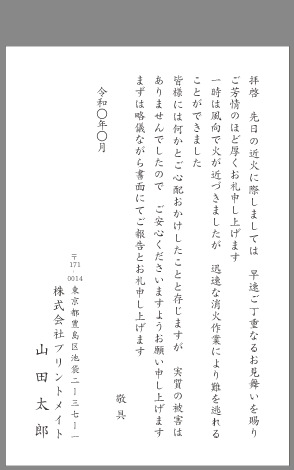 拝啓　先日の近火に際しましては　早速ご丁重なるお見舞いを賜り
ご芳情のほど厚くお礼申し上げます
一時は風向で火が近づきましたが　迅速な消火作業により難を逃れる
ことができました
皆様には何かとご心配おかけしたことと存じますが　実質の被害は
ありませんでしたので　ご安心くださいますようお願い申し上げます
まずは略儀ながら書面にてご報告とお礼申し上げます
敬具
令和〇年〇月
〒171-0014
東京都豊島区池袋二ー三七ー一
株式会社プリントメイト
山田太郎